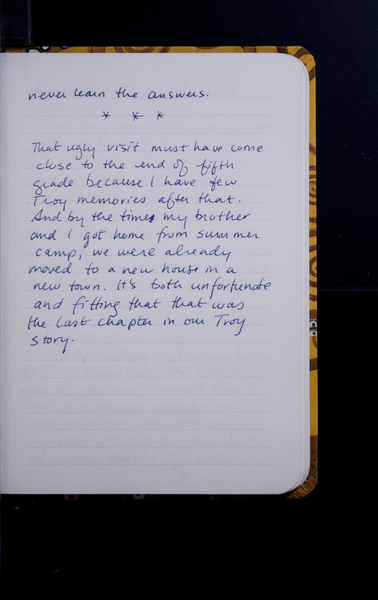 never learn the answers.
* * *
That ugly visit must have come
close to the end of fifth
grade because I have few
Troy memories after that.
And by the time my brother
and I got home from summer
camp, we were already
moved to a new house in a
new town. It's both unfortunate
and fitting that that was
the last chapter in our Troy
story.